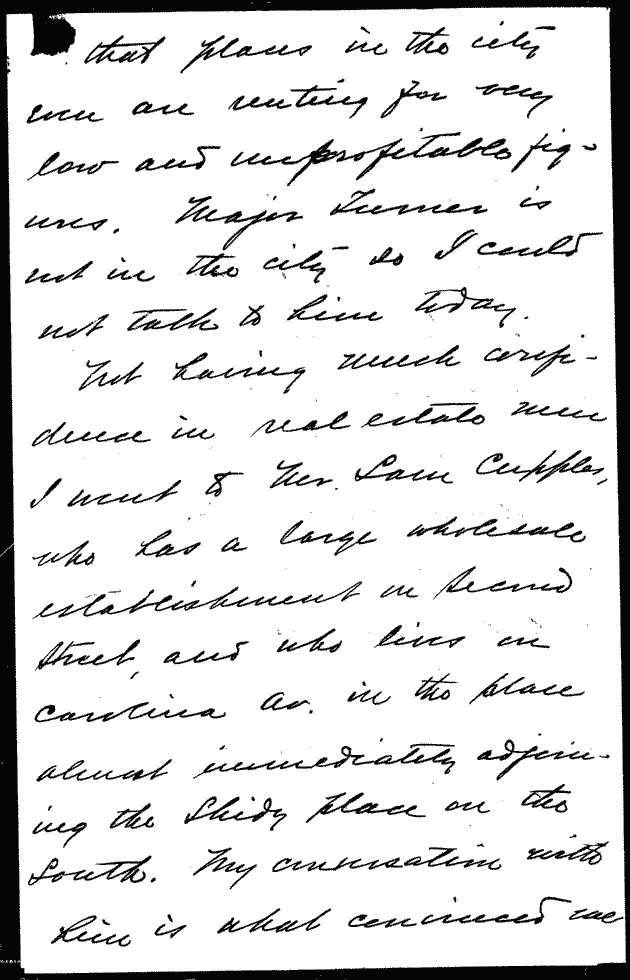 that places in the city
even are renting for very
low and unprofitable fig-
ures. Major Turner is
not in the city so I could
not talk to him today.
Not having much confi-
dence in real estate men
I went to Mr. Sam Cupples,
who has a large wholesale
establishment on Second
Street, and who lives on
Carolina Av. in the place
almost immediately adjoin-
ing the Skidy place on the
South. My conversation with
him is what convinced me